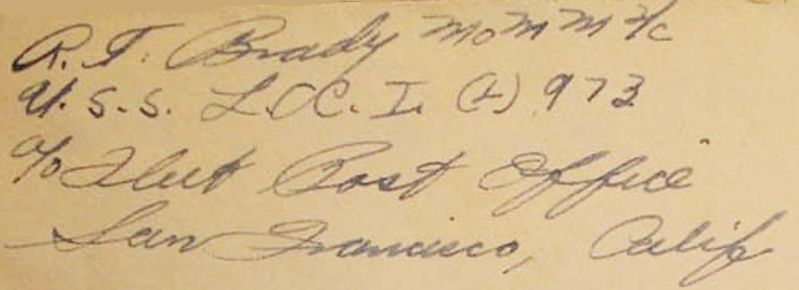 R. T. Brady MoMM 2/c
U.S.S. L.C. I. (L) 973
c/o Fleet Post Office
San Francisco, Calif